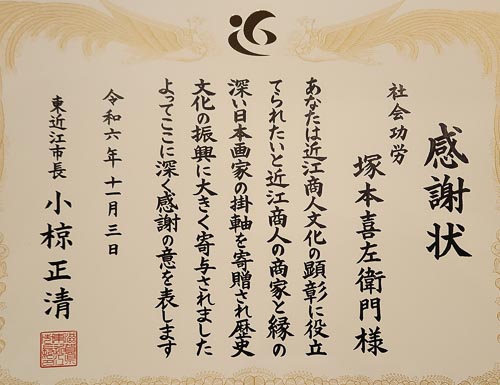 感謝状
社会功労
塚本喜左衛門様
あなたは近江商人文化の顕彰に役立
てられたいと近江商人の商家と縁の
深い日本画家の掛軸を寄贈され歴史
文化の振興に大きく寄与されました
よってここに深く感謝の意を表します
令和六年十一月三日
東近江市長 小椋正清